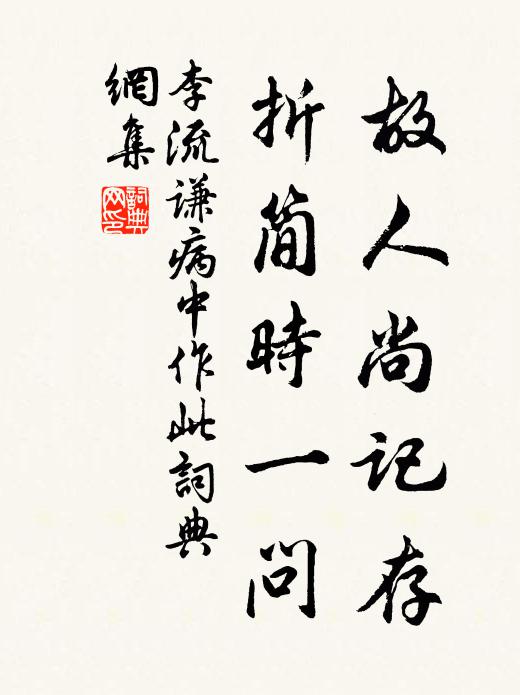 故人尚记存
折简時一问
李流谦病中作此詞典
網集
詞典
网印